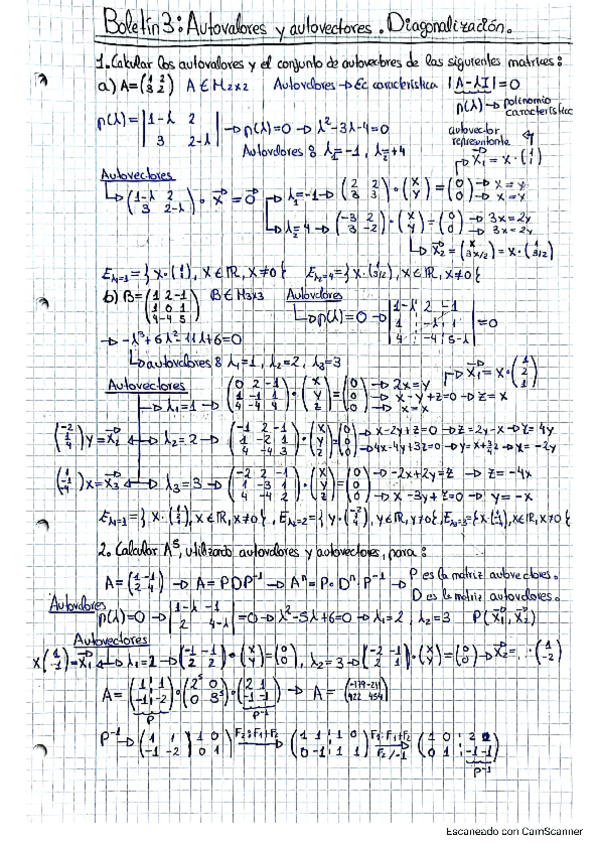 Boletín 3: Autovalores y autovectores. Diagonalización.
1. Calcular los autovalores y el conjunto de autovectores de las siguientes matrices:
a) A=(1 2 / 3 2) A ∈ M2x2 Autovalores → Ec característica |A-λI|=0
p(λ) → polinomio característico
p(λ)= |1-λ 2 / 3 2-λ| → p(λ)=0 → λ²-3λ-4=0
autovector representante
Autovalores: λ1=-1, λ2=+4
Autovectores
(1-λ 2 / 3 2-λ) · x = 0
λ1=-1 → (2 2 / 3 3) · (x / y) = (0 / 0)
λ2=4 → (-3 2 / 3 -2) · (x / y) = (0 / 0) → 3x=2y → 3x=2y
x2 = (x / 3x/2) = x · (1 / 3/2)
b) B=(1 2 -1 / 1 0 1 / 4 -4 5) B ∈ M3x3 Autovalores
p(λ)=0 → |1-λ 2 -1 / 1 -λ 1 / 4 -4 5-λ| =0
→ -λ³+6λ²-11λ+6=0
autovalores: λ1=1, λ2=2, λ3=3
x1 = x · (1 / 2 / 1)
Autovectores
λ1=1 → (0 2 -1 / 1 -1 1 / 4 -4 4) · (x / y / z) = (0 / 0 / 0) → x-y+z=0
x2 λ2=2 → (-1 2 -1 / 1 -2 1 / 4 -4 3) · (x / y / z) = (0 / 0 / 0) → x-2y+z=0 → z=2y-x → z=4y
→ 4x-4y+3z=0 → x=-2y
x3 λ3=3 → (-2 2 -1 / 1 -3 1 / 4 -4 2) · (x / y / z) = (0 / 0 / 0) → -2x+2y=z → z=-4x
→ x-3y+z=0 → y=-x
2. Calcular A⁵, utilizando autovalores y autovectores, para:
A=(1 -1 / 2 4) → A=PDP⁻¹ → Aⁿ=P·Dⁿ·P⁻¹ → P es la matriz autovectores.
D es la matriz autovalores.
Autovalores
p(λ)=0 → |1-λ -1 / 2 4-λ| =0 → λ²-5λ+6=0 → λ1=2, λ2=3 P(x1, x2)
Autovectores
x(1 / -1)=x1 λ1=2 → (-1 -1 / 2 2) · (x / y) = (0 / 0), λ2=3 → (-2 -1 / 2 1) · (x / y) = (0 / 0) → x2=...·(1 / -2)
A = (1 1 / -1 -2) · (2⁵ 0 / 0 3⁵) · (2 1 / -1 -1) → A = (-179 -211 / 422 454)
P P⁻¹
P⁻¹ → (1 1 1 0 / -1 -2 0 1) F2:F1+F2 (1 1 1 0 / 0 -1 1 1) F1:F1+F2 F2/-1
P⁻¹
Escaneado con CamScanner